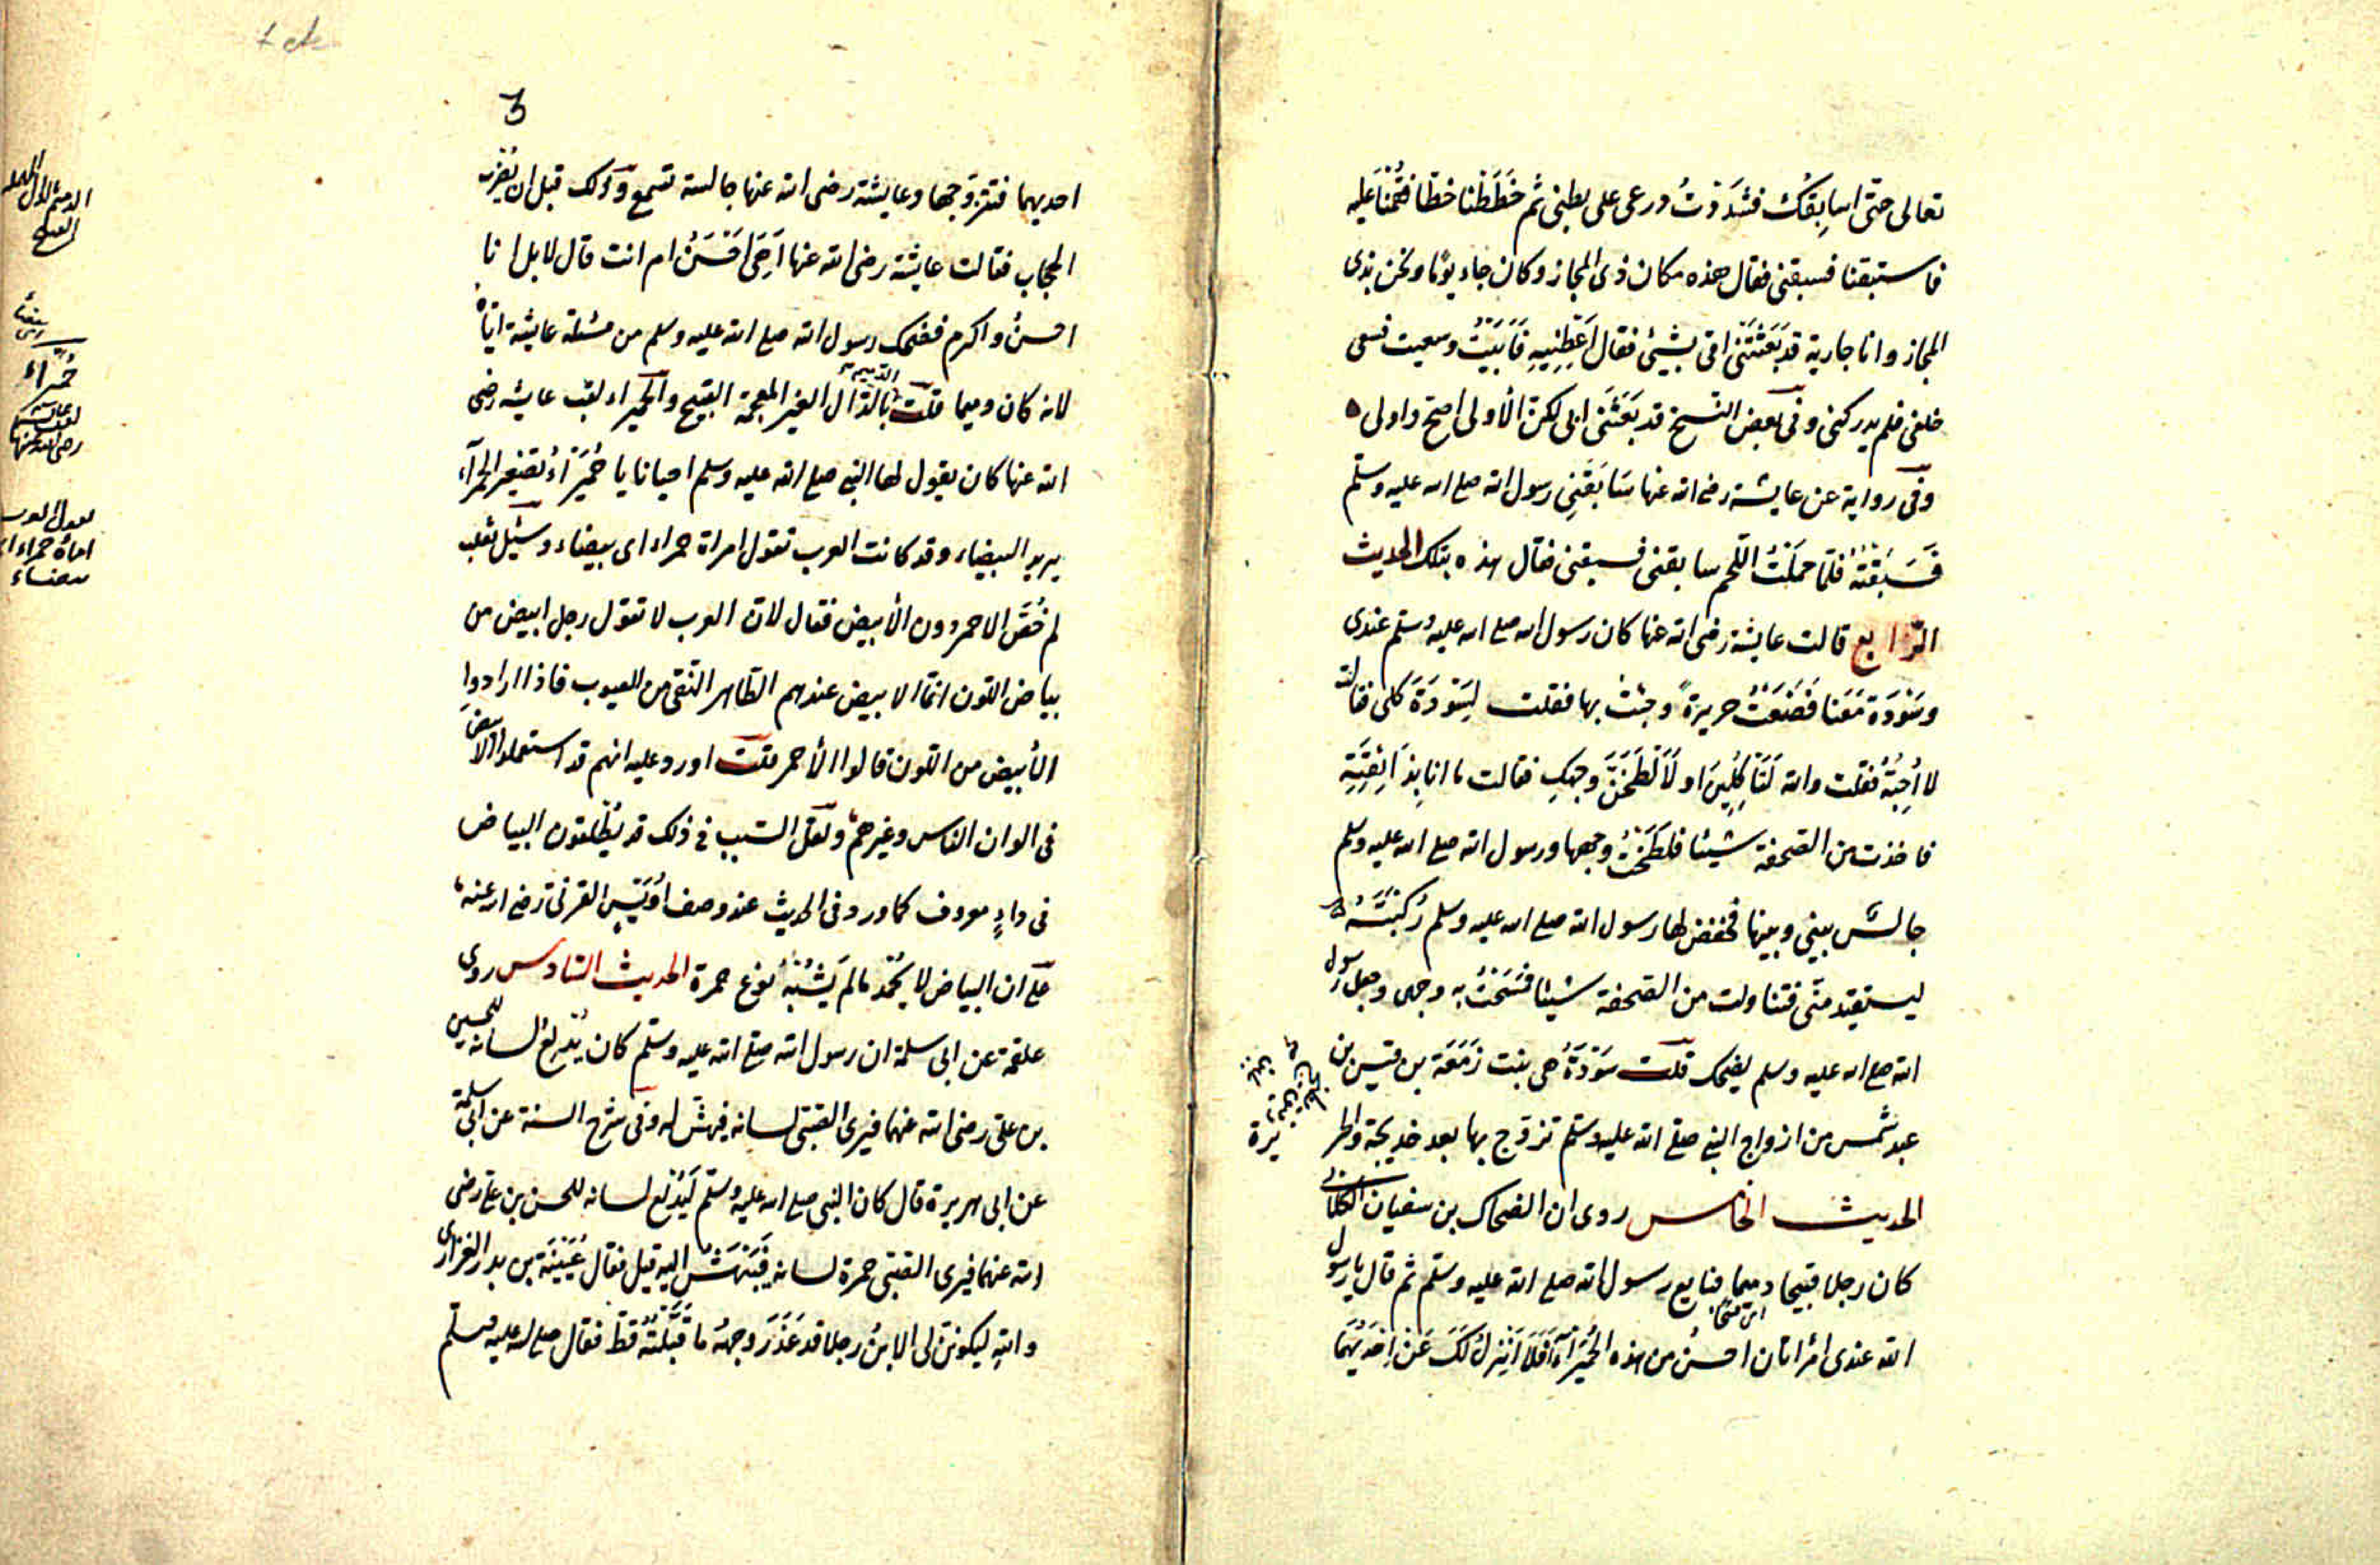 تعالى حتّى اسابِقك فشدَدْتُ درعى على بطنى ثم خَطَطْنا خطّا فقُمْنا عليه
فاستبقنا فسبقنى فقال هذه مكان ذى المجاز وكان جاء يومًا ونحن بذى
المجاز وانا جارية قد بَعَثَتْنى امّى بشيئ فقال اَعْطِنِيهِ فَاَبَيْتُ وسعيت فسعى
خلفى فلم يدركنى وفى بعض النسخ قد بَعَثَنى ابى لكن الأولى اصحّ واولى
وفى رواية عن عايشة رضى الله عنها سَابَقَنِى رسول الله صلع الله عليه وسلّم
فَسَبَقْتُهُ فلمّا حمَلْتُ اللّحم سابقنى فسبقنى فقال هذه بتلك الحديث
الرّابع قالت عايشة رضى الله عنها كان رسول الله صلع الله عليه وسلّم عندى
وسَوْدَة مَعَنا فَصَنَعْتُ حريرةً وجئتُ بها فقلت لِسَوْدَةَ كلى فقالت
لا اُحِبّهُ فقلت والله لَتَأكُلِينَ او لَأَلْطَخَنَّ وجهكِ فقالت ما انا بِذَائِقَتِهِ
فاخذت من الصّحفة شيئا فلَطَخْتُ وجهها ورسول الله صلع الله عليه وسلم
جالسٌ بينى وبينها فخفض لها رسول الله صلع الله عليه وسلم رُكْبَتَهُ
ليستقيد منّى فتناولت من الصّحفة شيئا فمَسَحْتُ به وجهى وجعل رسول
الله صلع الله عليه وسلم يضحك قلت سَوْدَةُ هى بنت زَمَعَة بن قيس بن
عبد شمس من ازواج النبى صلع الله عليه وسلّم تزوّج بها بعد خديجة والحر
يرة
الحديث الخامس روى ان الضحاك بن سفيان الكلابى
كان رجلا قبيحا دميما فبايع رسول الله صلع الله عليه وسلّم ثم قال يا رسول
الله عندى امرأتان احسنُ من هذه الحُمَيْرَآءِ اَفَلَا اَنْزِلُ لَكَ عَنْ اِحْدَيهُمَا
3
احديهما فتتزوّجها وعايشة رضى الله عنها جالسة تسمع وذلك قبل ان يُضْرَب
الحجاب فقالت عايشة رضى الله عنها اَهِىَ اَحْسَنُ ام انت قال لا بل انا
احسنُ واكرم فضحك رسول الله صلع الله عليه وسلم من مسئلة عايشة ايّاهُ
لانه كان دميما قلت بالدّال الغير المعجمة القبيح والحميراء لقب عايشه رضى
الله عنها كان يقول لها النبى صلع الله عليه وسلم احيانا يا حُمَيْرَآءُ تصغير الحمرآء
يريد البيضاء وقد كانت العرب تقول امراة حمراء اى بيضاء وسئيل ثعلب
لم خُصّ الاحمر دون الأبيض فقال لانّ العرب لا تقول رجل ابيض من
بياض اللّون انّما الابيض عندهم الطّاهر النّقى من العيوب فاذا ارادوا
الأبيض من اللّون قالوا الأحمر قلت اورد عليه انهم قد استعملوا الابيض
فى الوان النّاس وغيرهم ولعلّ السّبب فى ذلك قد يُطلقون البياض
فى داءٍ معروف كما ورد فى الحديث عند وصف اُوَيْسٍ القرنىّ رضى الله عنه
على ان البياض لا يُحْمَد ما لم يَشُبْهُ نوع حمرة الحديث السّادس روى
علقمة عن ابى سلمة ان رسول الله صلع الله عليه وسلّم كان يُدْلِعُ لسانه للحسين
بن علىّ رضى الله عنهما فيرى الصّبىّ لسانه فيهشّ له وفى شرح السنة عن ابى سلمة
عن ابى هريرة قال كان النبى صلع الله عليه وسلّم لَيُدْلِعُ لسانه للحسن بن على رضى
الله عنهما فيرى الصّبىّ حمرة لسانه فَيَبْهَشُ اليه قيل فقال عُيَيْنَة بن بدر الفزارى
واللهِ ليكوننّ لى الابنُ رجلا قد عَذّرَ وجههُ ما قَبَّلْتُهُ قطّ فقال صلع الله عليه وسلّم
حُمَيْرَاء
لقب عايشة
رضى الله عنها
امراة حمراء اى
بيضاء